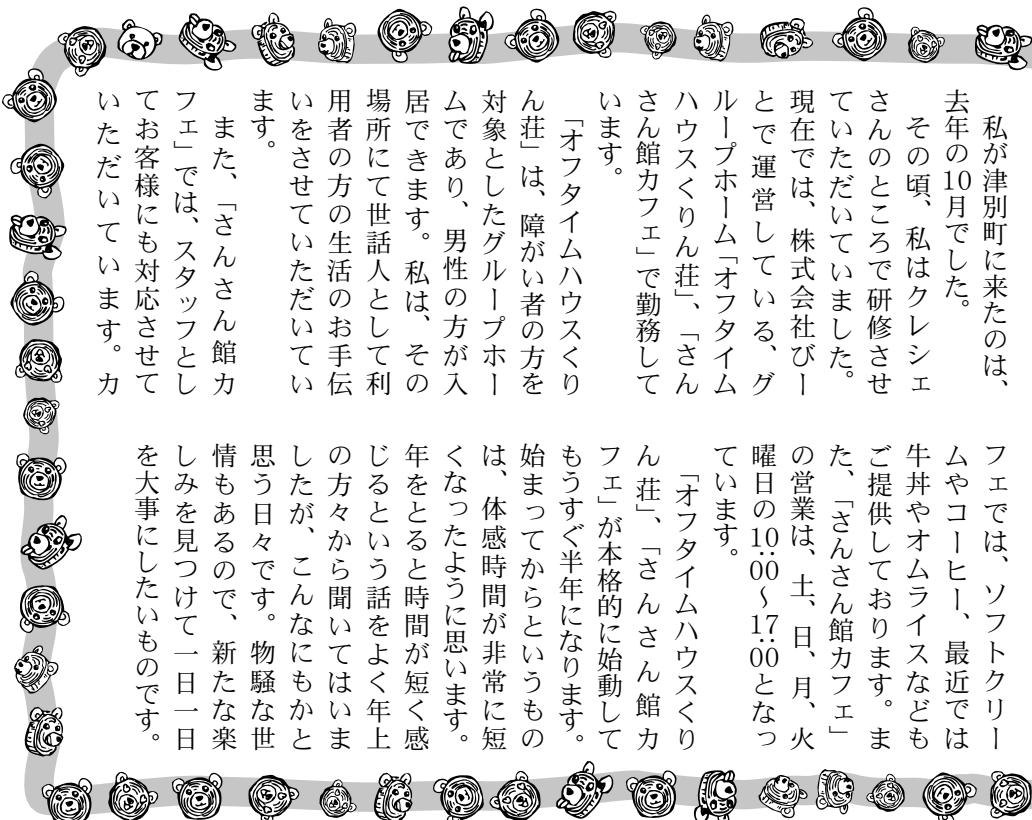 私が津別町に来たのは、
去年の10月でした。
その頃、私はクレシェ
さんのところで研修させ
ていただいていました。
現在では、株式会社びー
とで運営している、グ
ループホーム「オフタイム
ハウスくりん荘」、「さん
さん館カフェ」で勤務して
います。
「オフタイムハウスくり
ん荘」は、障がい者の方を
対象としたグループホー
ムであり、男性の方が入
居できます。私は、その
場所にて世話人として利
用者の方の生活のお手伝
いをさせていただいてい
ます。
また、「さんさん館カ
フェ」では、スタッフとし
てお客様にも対応させて
いただいています。カ
フェでは、ソフトクリー
ムやコーヒー、最近では
牛丼やオムライスなども
ご提供しております。ま
た、「さんさん館カフェ」
の営業は、土、日、月、火
曜日の10:00～17:00となっ
ています。
「オフタイムハウスくり
ん荘」、「さんさん館カ
フェ」が本格的に始動して
もうすぐ半年になります。
始まってからというもの
は、体感時間が非常に短
くなったように思います。
年をとると時間が短く感
じるという話をよく年上
の方々から聞いてはいま
したが、こんなにもかと
思う日々です。物騒な世
情もあるので、新たな楽
しみを見つけて一日一日
を大事にしたいものです。